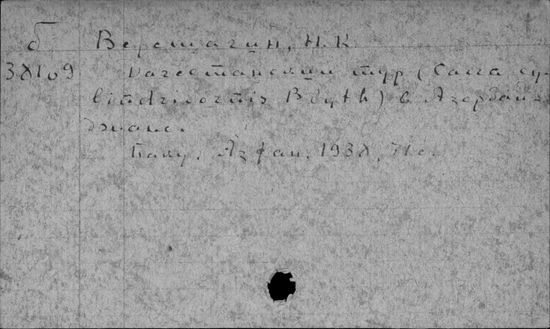 б Верещагин, Н.К.
38109 Дагестанский тур (Capra cy-
lindricornis Blyth) в Азербай-
джане.
Баку, Азфан, 1938, 71 с.